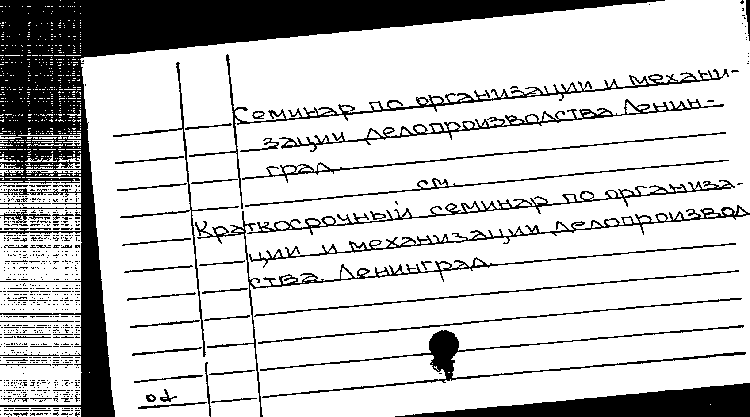 Семинар по организации и механи-
зации делопроизводства. Ленин-
град.
см.
Краткосрочный семинар по организа-
ции и механизации делопроизвод
ства. Ленинград.